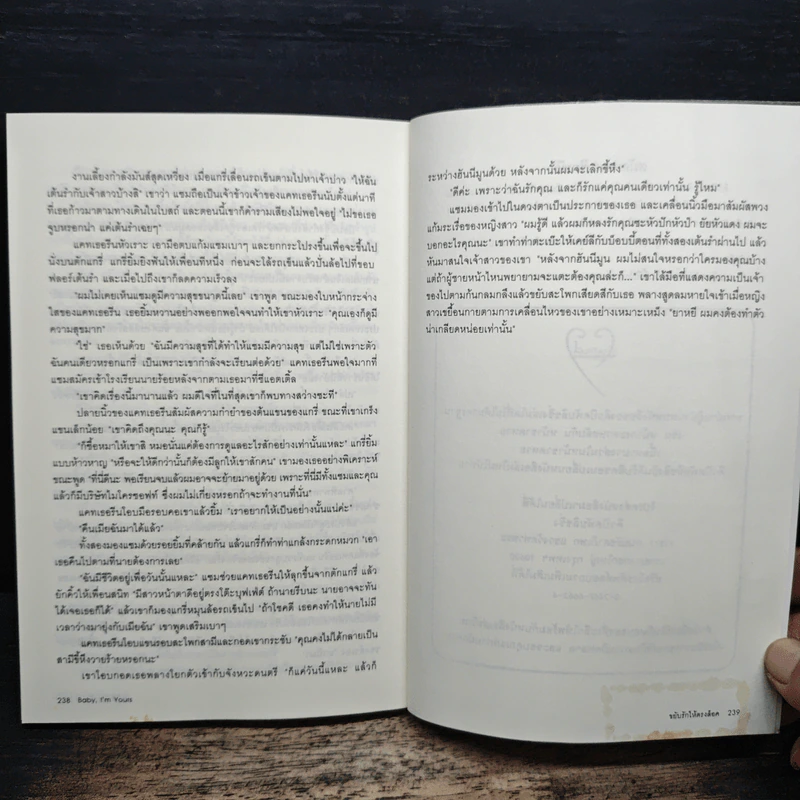 งานเลี้ยงกำลังมันส์สุดเหวี่ยง เมื่อแกรี่เลื่อนรถเข็นตามไปหาเจ้าบ่าว "ให้ฉัน
เต้นรำกับเจ้าสาวบ้างสิ" เขาว่า แซมถือเป็นเจ้าข้าวเจ้าของแคทเธอรีนนับตั้งแต่นาที
ที่เธอก้าวมาตามทางเดินในโบสถ์ และตอนนี้เขาก็คำรามเสียงไม่พอใจอยู่ "ไม่ขอเธอ
จูบหรอกน่า แค่เต้นรำเฉยๆ"
แคทเธอรีนหัวเราะ เอามือตบแก้มแซมเบาๆ และยกกระโปรงขึ้นเพื่อจะขึ้นไป
นั่งบนตักแกรี่ แกรี่ยิ้มยิงฟันให้เพื่อนทีหนึ่ง ก่อนจะไล้รถเข็นแล้วปั่นล้อไปที่ขอบ
ฟลอร์เต้นรำ และเมื่อไปถึงเขาก็ลดความเร็วลง
"ผมไม่เคยเห็นแซมดูมีความสุขขนาดนี้เลย" เขาพูด ขณะมองใบหน้ากระจ่าง
ใสของแคทเธอรีน เธอยิ้มหวานอย่างพออกพอใจจนทำให้เขาหัวเราะ "คุณเองก็ดูมี
ความสุขมาก"
"ใช่" เธอเห็นด้วย "ฉันมีความสุขที่ได้ทำให้แซมมีความสุข แต่ไม่ใช่เพราะตัว
ฉันคนเดียวหรอกแกรี่ เป็นเพราะเขากำลังจะเรียนต่อด้วย" แคทเธอรีนพอใจมากที่
แซมสมัครเข้าโรงเรียนนายร้อยหลังจากตามเธอมาที่ซีแอตเติ้ล
"เขาคิดเรื่องนี้มานานแล้ว ผมดีใจที่ในที่สุดเขาก็พบทางสว่างซะที"
ปลายนิ้วของแคทเธอรีนสัมผัสความกำยำของต้นแขนของแกรี่ ขณะที่เขาเกร็ง
แขนเล็กน้อย "เขาคิดถึงคุณนะ คุณก็รู้"
"ก็ซื้อหมาให้เขาสิ หมอนั่นแค่ต้องการดูแลอะไรสักอย่างเท่านั้นแหละ" แกรี่ยิ้ม
แบบห้าวหาญ "หรือจะให้ดีกว่านั้นก็ต้องมีลูกให้เขาสักคน" เขามองเธออย่างพิเคราะห์
ขณะพูด "ที่นี่ดีนะ พอเรียนจบแล้วผมอาจจะย้ายมาอยู่ด้วย เพราะที่นี่มีทั้งแซมและคุณ
แล้วก็มีบริษัทไมโครซอฟท์ ซึ่งผมไม่เกี่ยงหรอกถ้าจะทำงานที่นั่น"
แคทเธอรีนโอบมือรอบคอเขาแล้วยิ้ม "เราอยากให้เป็นอย่างนั้นแน่ค่ะ"
"คืนเมียฉันมาได้แล้ว"
ทั้งสองมองแซมด้วยรอยยิ้มที่คล้ายกัน แล้วแกรี่ก็ทำท่าแกล้งกระดกหมวก "เอา
เธอคืนไปตามที่นายต้องการเลย"
"ฉันมีชีวิตอยู่เพื่อวันนั้นแหละ" แซมช่วยแคทเธอรีนให้ลุกขึ้นจากตักแกรี่ แล้ว
ยักคิ้วให้เพื่อนสนิท "มีสาวหน้าตาดีอยู่ตรงโต๊ะบุฟเฟ่ต์ ถ้านายรีบนะ นายอาจจะทัน
ได้เจอเธอก็ได้" แล้วเขาก็มองแกรี่หมุนล้อรถเข็นไป "ถ้าโชคดี เธอคงทำให้นายไม่มี
เวลาว่างมายุ่งกับเมียฉัน" เขาพูดเสริมเบาๆ
แคทเธอรีนโอบแขนรอบสะโพกสามีและกอดเขากระชับ "คุณคงไม่ได้กลายเป็น
สามีขี้หึงวายร้ายหรอกนะ"
เขาโอบกอดเธอพลางโยกตัวเข้ากับจังหวะดนตรี "ก็แค่วันนี้แหละ แล้วก็
238 Baby, I'm Yours
ระหว่างฮันนีมูนด้วย หลังจากนั้นผมจะเลิกขี้หึง"
"ดีค่ะ เพราะว่าฉันรักคุณ และก็รักแค่คุณคนเดียวเท่านั้น รู้ไหม"
แซมมองเข้าไปในดวงตาเป็นประกายของเธอ และเคลื่อนนิ้วมือมาสัมผัสพวง
แก้มระเรื่อของหญิงสาว "ผมรู้ดี แล้วผมก็หลงรักคุณซะหัวปักหัวปำ ยัยหัวแดง ผมจะ
บอกอะไรคุณนะ" เขาทำท่าตะเบ๊ะให้เคย์ลีกับบ็อบบี้ตอนที่ทั้งสองเต้นรำผ่านไป แล้ว
หันมาสนใจเจ้าสาวของเขา "หลังจากฮันนีมูน ผมไม่สนใจหรอกว่าใครมองคุณบ้าง
แต่ถ้าผู้ชายหน้าไหนพยายามจะแตะต้องคุณล่ะก็..." เขาไล้มือที่แสดงความเป็นเจ้า
ของไปตามก้นกลมกลึงแล้วขยับสะโพกเสียดสีกับเธอ พลางสูดลมหายใจเข้าเมื่อหญิง
สาวเขยื้อนกายตามการเคลื่อนไหวของเขาอย่างเหมาะเหม็ง "ยาหยี ผมคงต้องทำตัว
น่าเกลียดหน่อยเท่านั้น"
ขยับรักให้ตรงล็อค 239